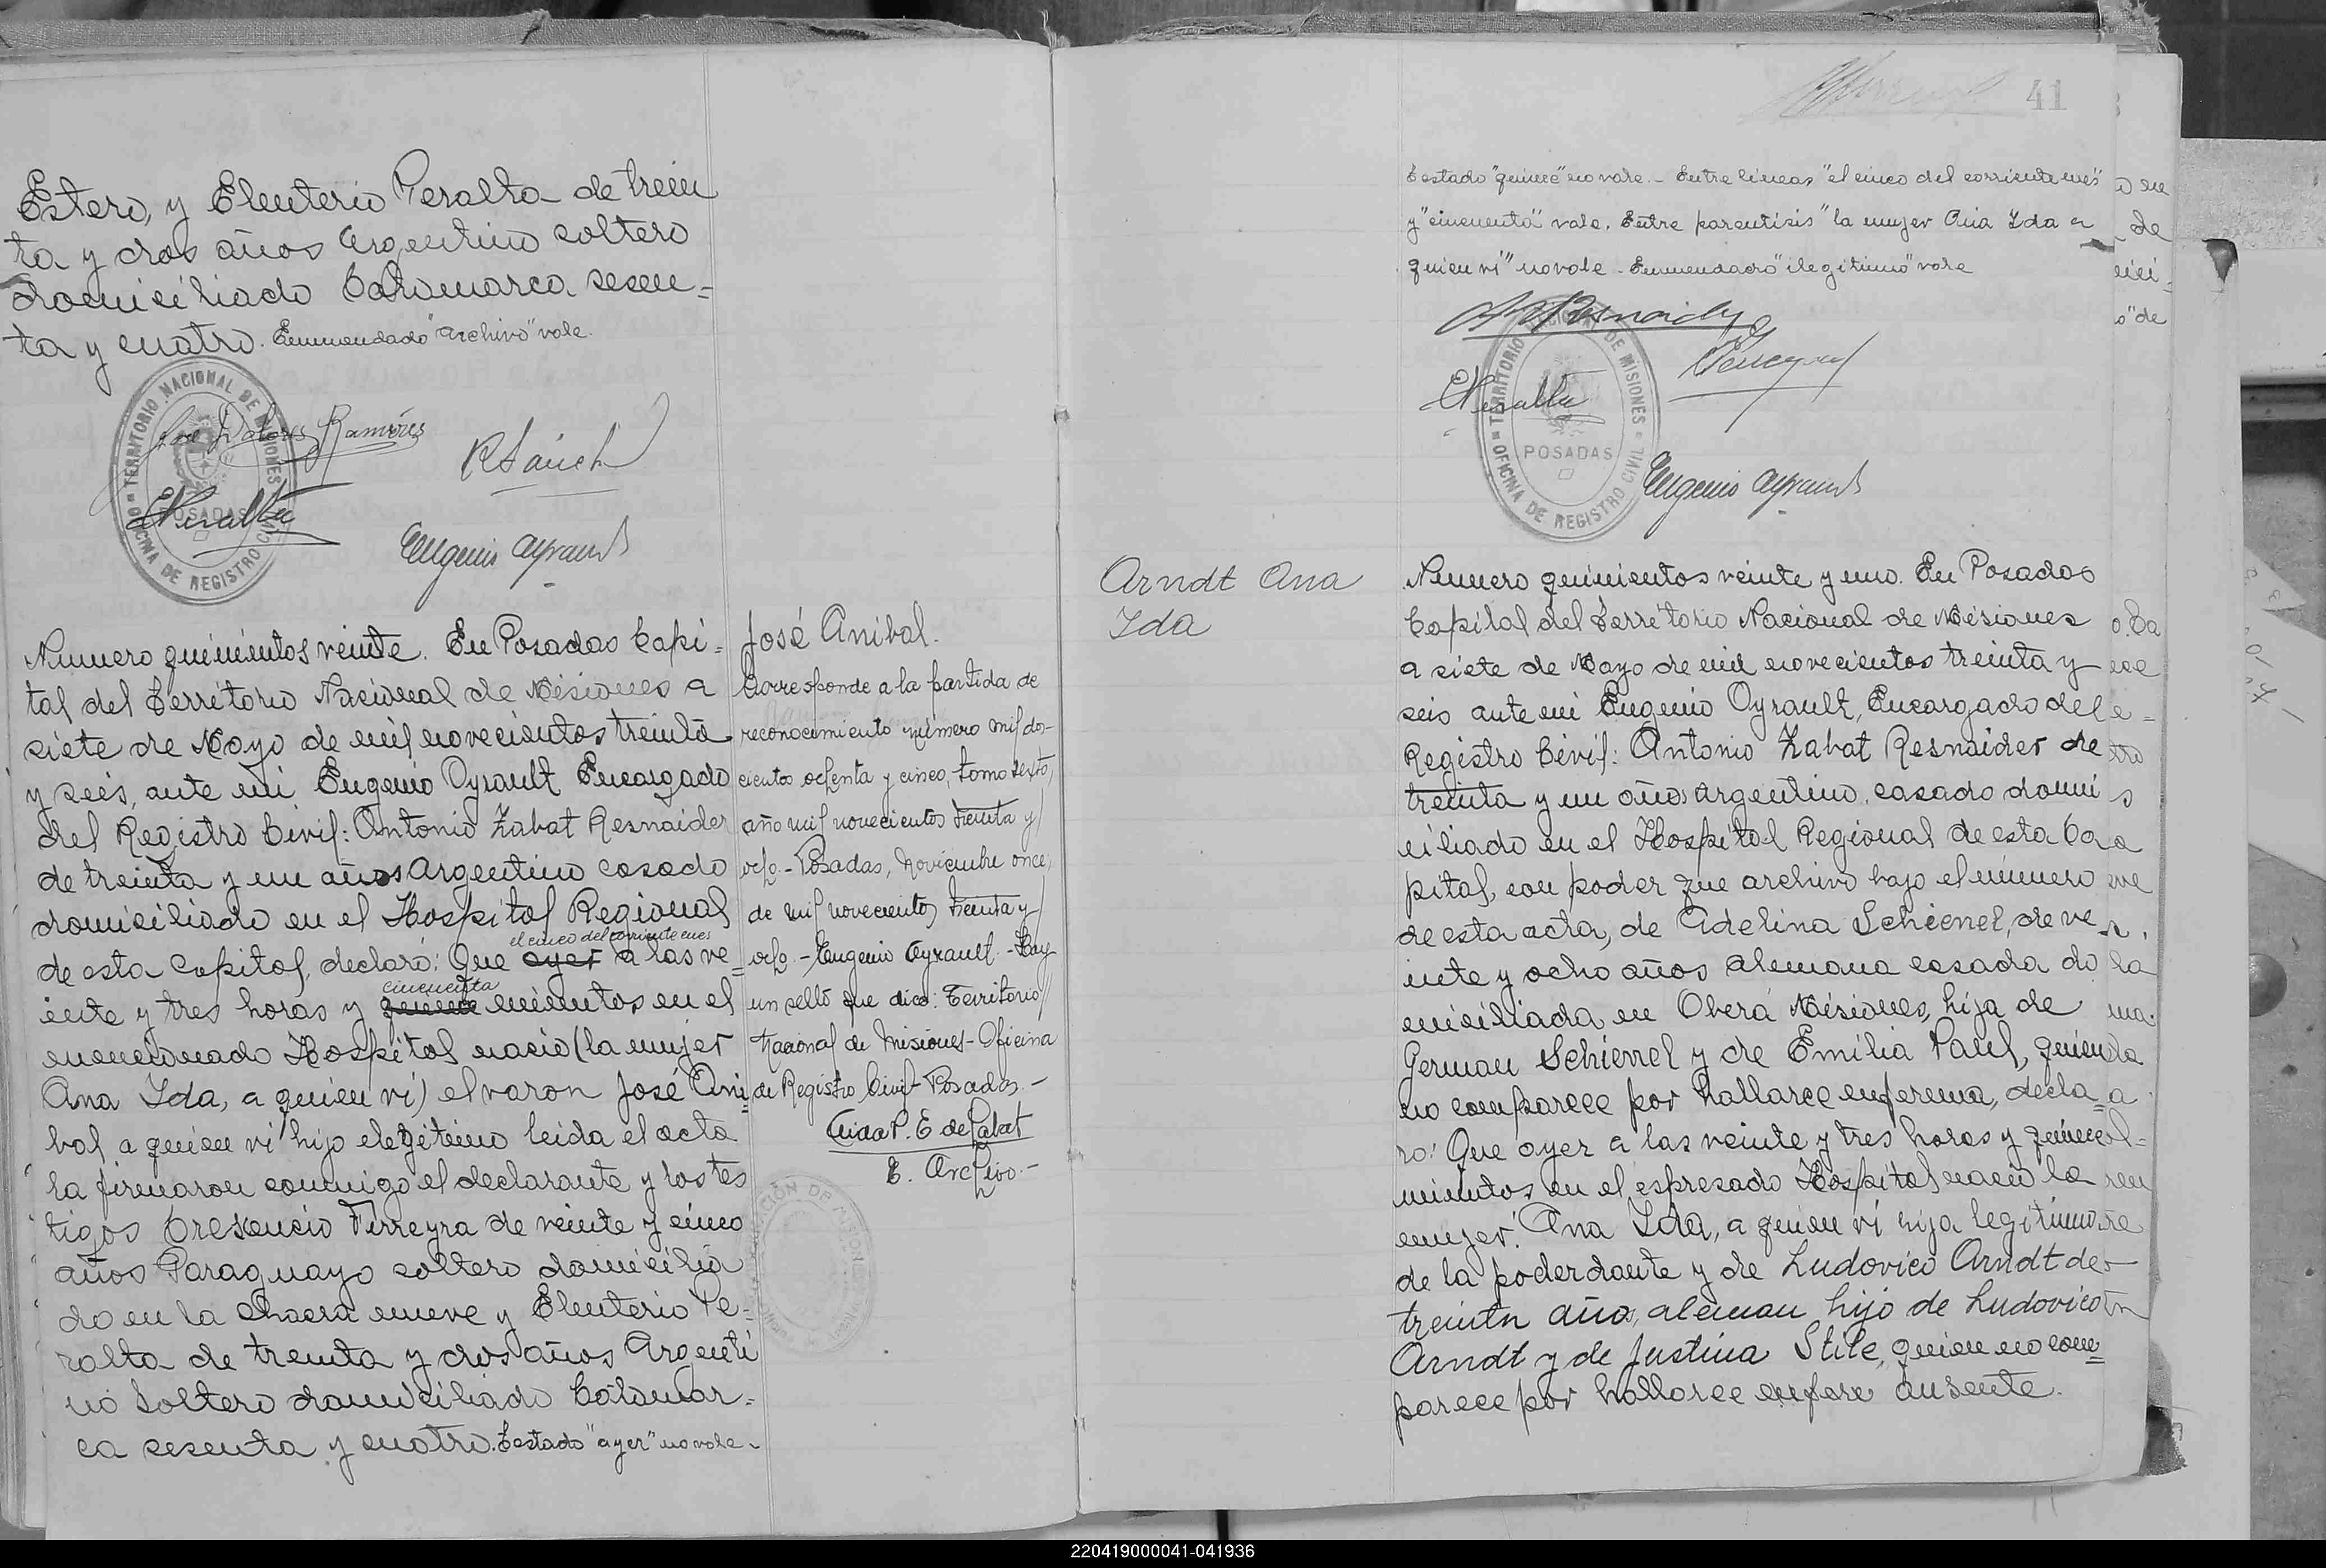 Estero, y Eleuterio Peralta de trein
ta y dos años Argentino soltero
domiciliado Catamarca sesen=
ta y cuatro. Enmendado "archivo" vale.
TERRITORIO NACIONAL DE MISIONES
OFICINA DE REGISTRO CIVIL
POSADAS
José Dolores Ramírez
EPeralta
Eugenio Ayrault
Numero quinientos veinte. En Posadas Capi=
tal del Territorio Nacional de Misiones a
siete de Mayo de mil novecientos treinta
y seis, ante mi Eugenio Ayrault Encargado
del Registro Civil: Antonio Zabat Resnaider
de treinta y un años Argentino casado
domiciliado en el Hospital Regional
el cinco del corriente mes
de esta Capital, declaró: Que ayer a las ve=
cincuenta
inte y tres horas y quince minutos en el
mencionado Hospital nacio (la mujer
Ana Ida, a quien vi) el varon José Ani=
bal a quien vi hijo ilegitimo leida el acta
la firmaron conmigo el declarante y los tes
tigos Cresencio Ferreyra de veinte y cinco
años Paraguayo soltero domicilia
do en la chacra nueve y Eleuterio Pe=
ralta de treinta y dos años Argenti
no soltero domiciliado Catamar=
ca sesenta y cuatro. Testado "ayer" no vale.
José Anibal.
Corresponde a la partida de
reconocimiento número mil dos-
cientos ochenta y cinco, tomo sexto,
año mil novecientos treinta y
ocho.- Posadas, Noviembre once,
de mil novecientos treinta y
ocho.- Eugenio Ayrault.- Hay
un sello que dice: Territorio
Nacional de Misiones- Oficina
de Registro Civil- Posadas.-
P. E de Zabat
E. Archivo.-
41
Testado "quince" no vale.- Entre lineas "el cinco del corriente mes"
y "cincuenta" vale. Entre parentisis "la mujer Ana Ida a
quien vi" no vale. Enmendado "ilegitimo" vale
TERRITORIO NACIONAL DE MISIONES
OFICINA DE REGISTRO CIVIL
POSADAS
EPeralta
Eugenio Ayrault
Arndt Ana
Ida
Numero quinientos veinte y uno. En Posadas
Capital del Territorio Nacional de Misiones
a siete de Mayo de mil novecientos treinta y
seis ante mi Eugenio Ayrault, Encargado del
Registro Civil: Antonio Zabat Resnaider de
treinta y un años Argentino, casado domi
ciliado en el Hospital Regional de esta Ca
pital, con poder que archivo bajo el número
de esta acta, de Adelina Schienel, de ve
inte y ocho años alemana casada do
miciliada en Oberá Misiones, hija de
German Schienel y de Emilia Paul, quien
no comparece por hallarce enferma, decla
ró: Que ayer a las veinte y tres horas y quince
minutos en el espresado Hospital nacio la
mujer: Ana Ida, a quien vi hija legitima
de la poderdante y de Ludovico Arndt de
treinta años, aleman hijo de Ludovico
Arndt y de Justina Stile, quien no com=
parece por hallarce enfere ausente.
220419000041-041936